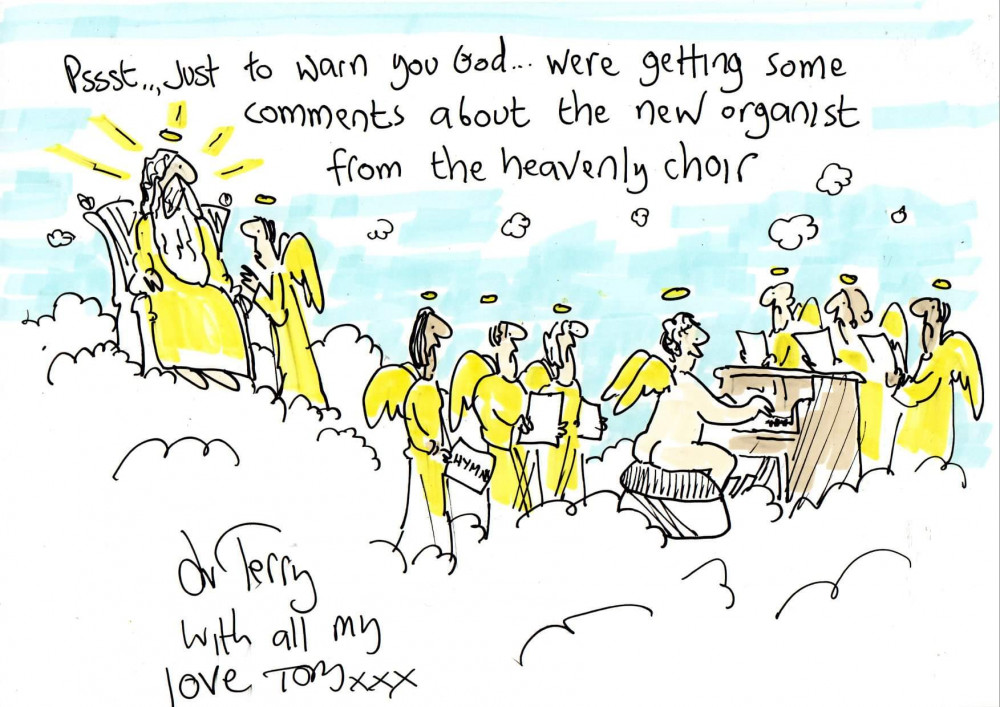 Pssst..,Just to warn you God... were getting some
comments about the new organist
from the heavenly choir
HYMNS
dr Terry
with all my
love Tom xxx